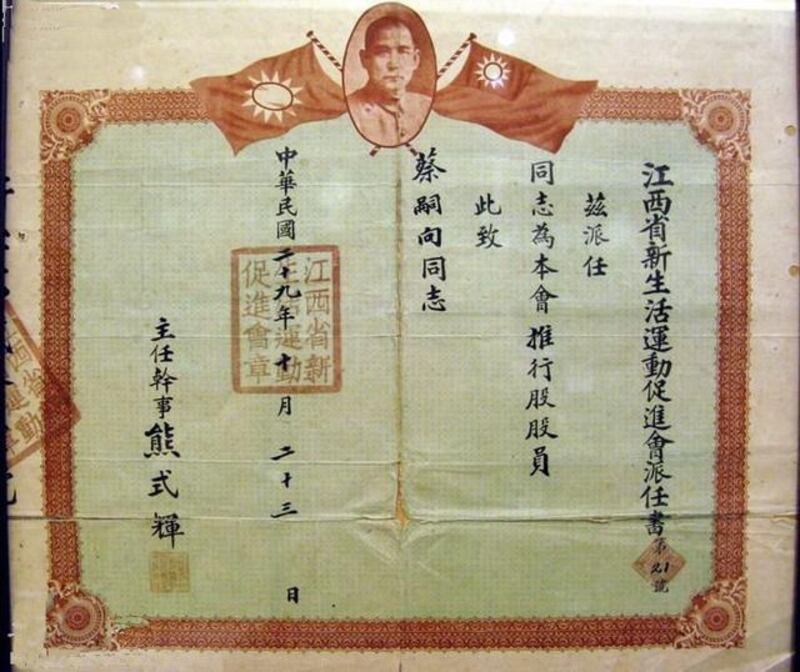 江西省新生活運動促進會派任書
第21號
茲派任
同志為本會推行股股員
此致
蔡嗣向同志
中華民國二十九年十月二十三日
江西省新生活運動促進會章
主任幹事熊式輝